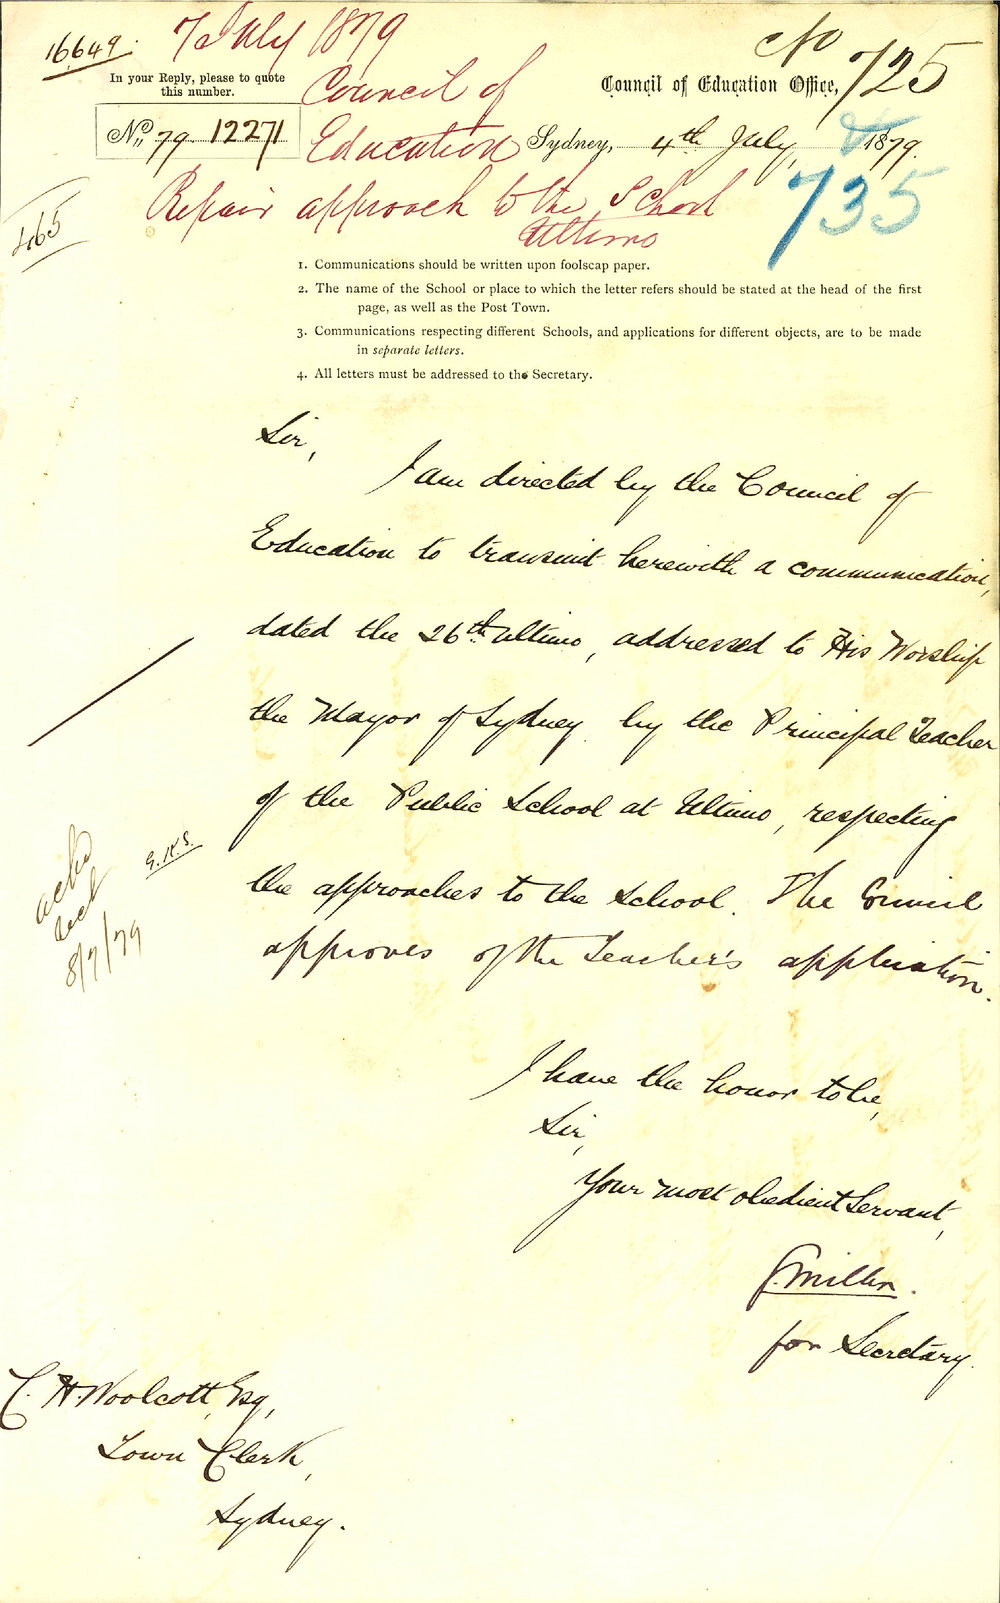 16649. 7 July 1879
No 725
In your Reply, please to quote
this number.
Council of
Council of Education Office,
No. 79. 12271
Education
Sydney, 4th July, 1879.
735
465
Repair approach to the School
Ultimo
1. Communications should be written upon foolscap paper.
2. The name of the School or place to which the letter refers should be stated at the head of the first
page, as well as the Post Town.
3. Communications respecting different Schools, and applications for different objects, are to be made
in separate letters.
4. All letters must be addressed to the Secretary.
Sir,
I am directed by the Council of
Education to transmit herewith a communication,
dated the 26th Ultimo, addressed to His Worship
the Mayor of Sydney by the Principal Teacher
of the Public School at Ultimo, respecting
the approaches to the School. The Council
approves of the Teacher's application.
8/7/79
I have the honor to be,
Sir,
Your most obedient Servant,
Miller.
for Secretary.
C. H. Woolcott, Esq,
Town Clerk,
Sydney.